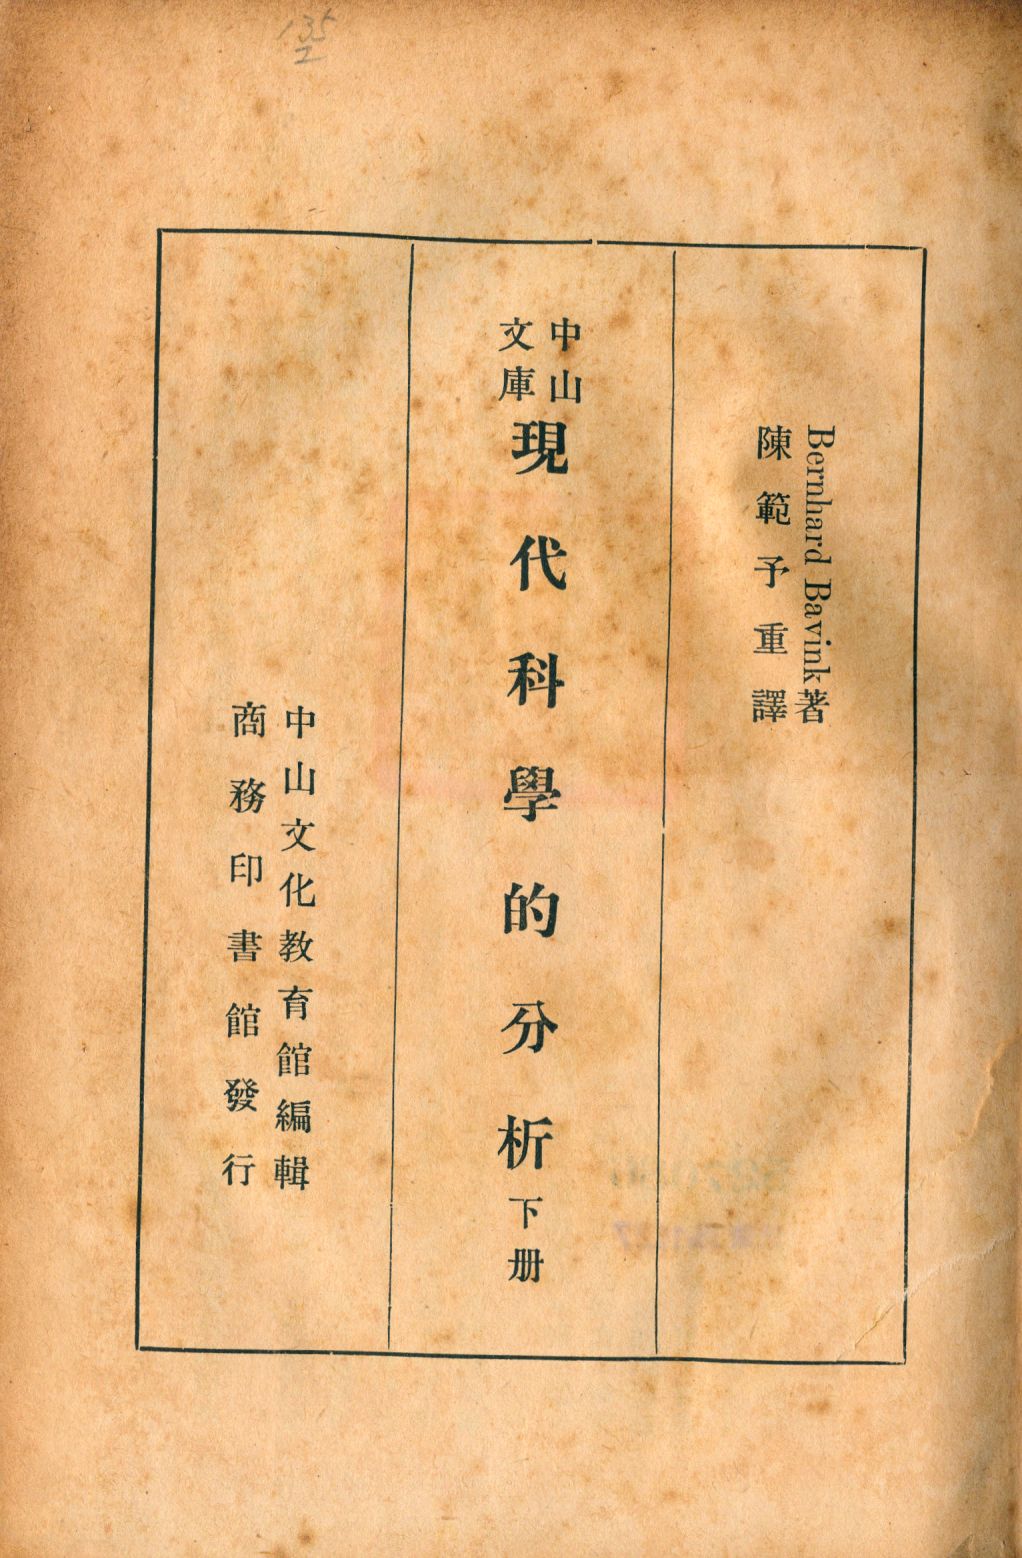 135
2
Bernhard Bavink著
陳範予重譯
中山
文庫
現代科學的分析下册
中山文化教育館編輯
商務印書館發行